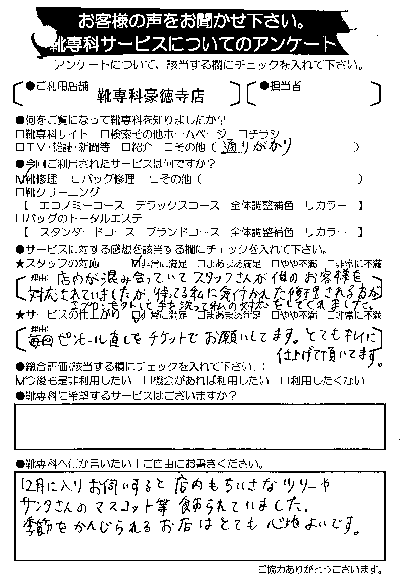 お客様の声をお聞かせ下さい。
靴専科サービスについてのアンケート
アンケートについて、該当する欄にチェックを入れて下さい。
●ご利用店舗
靴専科豪徳寺店
●担当者
●何をご覧になって靴専科を知りましたか?
□靴専科サイト □検索その他ホームページ □チラシ
□TV・雑誌・新聞等 □紹介 □その他( 通りがかり )
●今回ご利用されたサービスは何ですか?
☑靴修理 □バッグ修理 □その他( )
□靴クリーニング
【 エコノミーコース デラックスコース 全体調整補色 リカラー 】
□バッグのトータルエステ
【 スタンダードコース ブランドコース 全体調整補色 リカラー 】
●サービスに対する感想を該当する欄にチェックを入れて下さい。
★スタッフの対応 ☑非常に満足 □まあまあ満足 □やや不満 □非常に不満
理由 店内が混み合っていてスタッフさんが他のお客様を
対応されていましたが、待ってる私に気付かれた修理される方が
その手を止めて私の対応をしてくれました。
★サービスの仕上がり ☑非常に満足 □まあまあ満足 □やや不満 □非常に不満
理由 毎回ピンヒール直しをチケットでお願いしてます。とてもキレイに
仕上げて頂いてます。
●総合評価(該当する欄にチェックを入れて下さい。)
☑今後も是非利用したい □機会があれば利用したい □利用したくない
●靴専科に希望するサービスはございますか?
●靴専科へ何か言いたい!ご自由にお書きください。
12月に入りお伺いすると店内もちいさなツリーや
サンタさんのマスコット等飾られていました。
季節をかんじられるお店はとても心地よいです。
ご協力ありがとうございます。